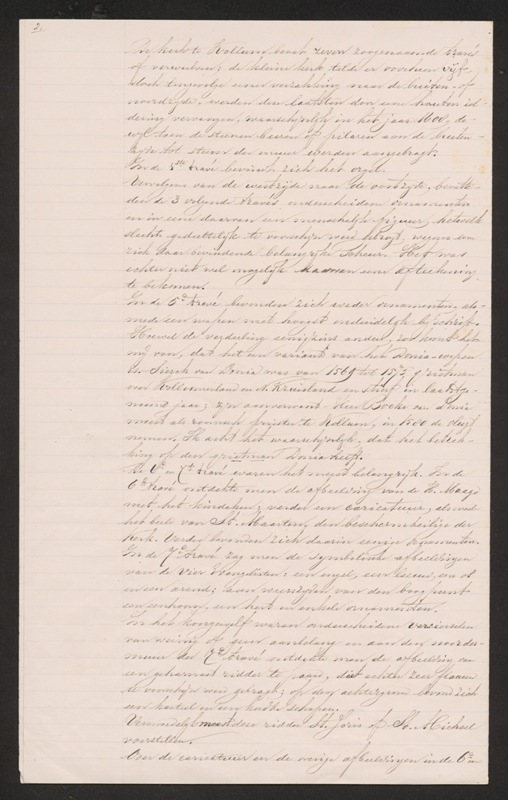 2
De kerk te Kollum bevat zeven zoogenaamde travé
of verwelven; de kleine kerk telde er voorheen vijf
doch tengevolge eener verzakking naar de buiten- of
noordzijde, werden den laatsten door een houten zol
dering vervangen, waarschijnlijk in het jaar 1600, de-
wijl toen de steenen beeren of pilaren aan de buiten-
zijde tot steun der muur werden aangebragt.
In de 1ste travé bevindt zich het orgel.
Vervolgens van de westzijde naar de oostzijde, bevat-
den de 3 volgende través onderscheidene ornamenten
en in eene daarvan een menschelijk figuur, hetwelk
slechts gedeeltelijk te voorschijn werd gebragt, wegens een
zich daar bevindende belangrijke scheur. Het was
echter niet wel mogelijk daarvan eene afteekening
te bekomen.
In de 5e travé bevonden zich weder ornamenten, als-
mede een wapen met hoogst onduidelijk bijschrift.
Hoewel de verdeeling eenigzins anders, zoo komt het
mij voor, dat het een variant van het Donia-wapen
is. Sijds van Donia was van 1569 tot 1575 grietman
van Kollumerland en N. Kruisland en stierf in laatstge-
noemd jaar; zijn Heer Bocke van Donia
moest als roomsch priester te Kollum, in 1580 de vlugt
nemen. Ik acht het waarschijnlijk, dat het betrek-
king op den grietman Donia heeft.
De 6e en 7e travé waren het meest belangrijk. In de
6de travé ontdekte men de afbeelding van de H. Maagd
met het kindeken; verder een caricatuur, alsmede
het beeld van St. Maarten, den beschermheilige der
kerk. Verder bevonden zich daarin eenige ornamenten.
In de 7e travé zag men de symbolische afbeeldingen
van de vier Evangelisten: een engel, een leeuw, een os
en een arend; aan weerszijden van den boog punt
een eenhoorn, een hert en enkele ornamenten.
In het koorgewelf waren onderscheidene versierselen
van weinig of geen aanbelang en aan den noorder-
muur der 7e travé ontdekte men de afbeelding van
een geharnast ridder te paard, die echter zeer flaauw
te voorschijn werd gebragt; op den achtergrond bevond zich
een kasteel en een kudde schapen.
Vermoedelijk moest deze ridder St. Joris of St. Michael
voorstellen.
Over de caricatuur en de overige afbeeldingen in de 6e en